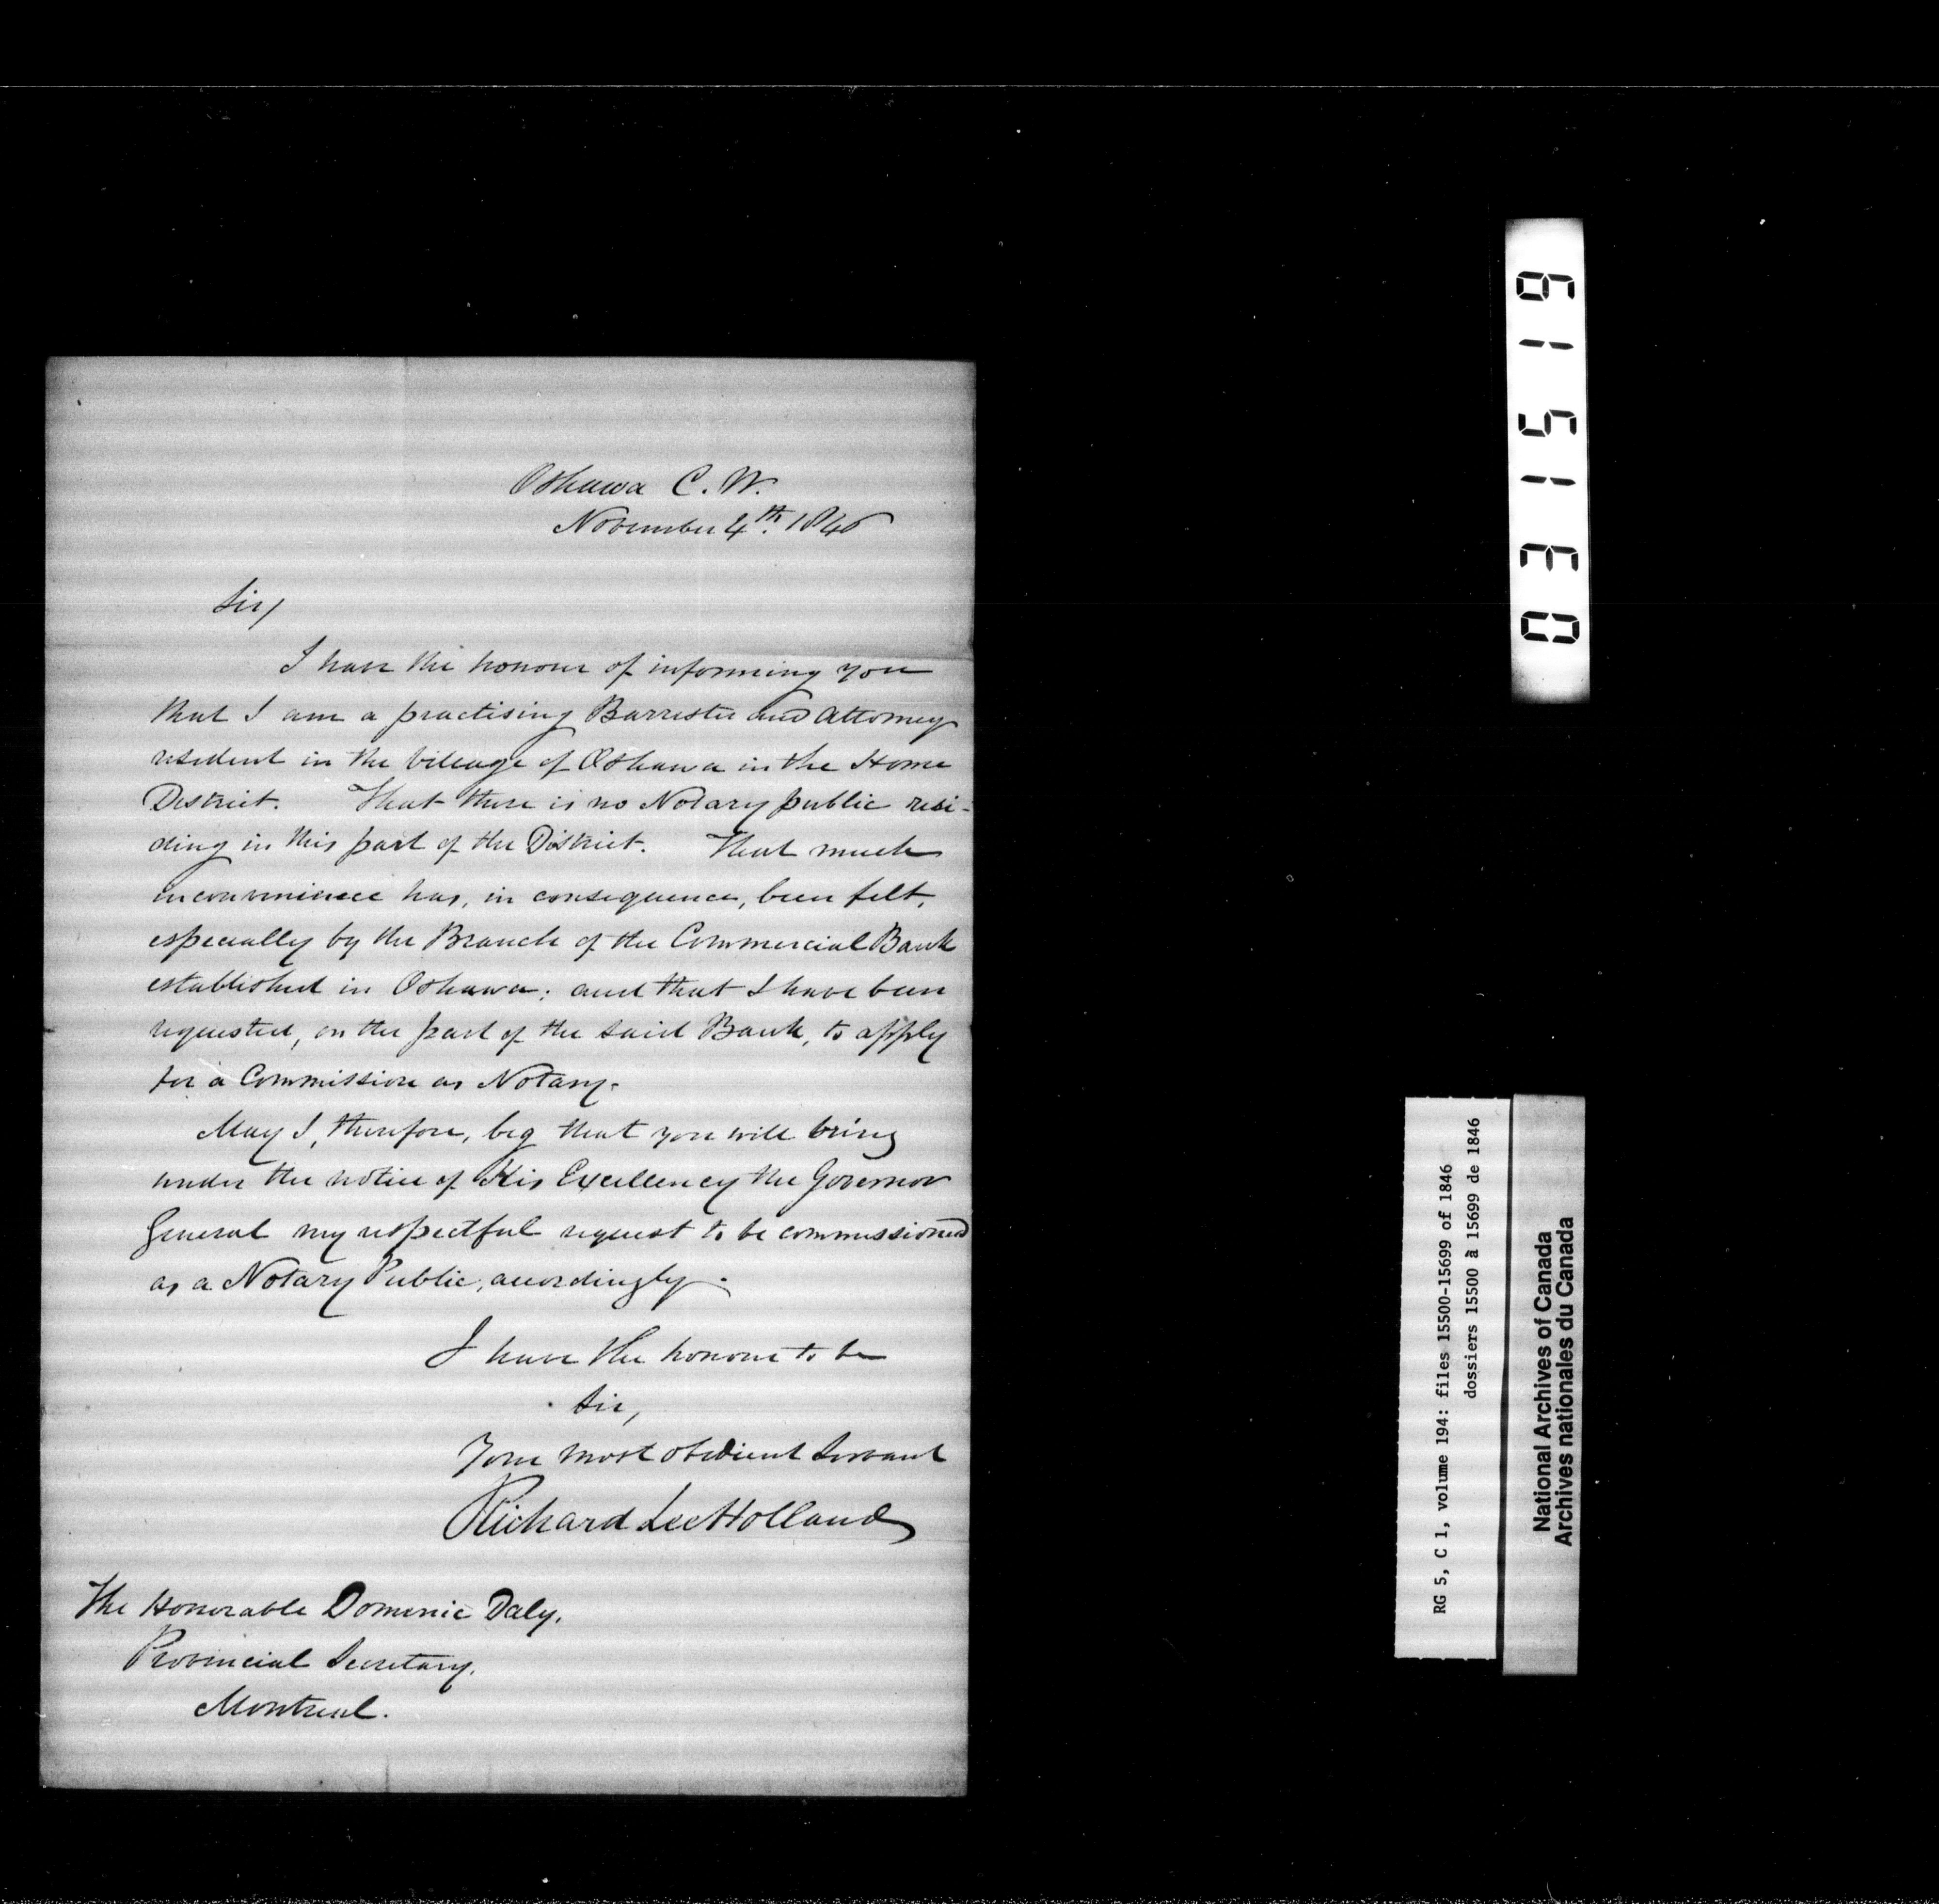 Oshawa C. W.
November 4th. 1846
Sir/
I have the honour of informing you
that I am a practising Barrister and Attorney
resident in the village of Oshawa in the Home
District. That there is no Notary public resi-
ding in this part of the District. That much
inconvenience has, in consequence, been felt,
especially by the Branch of the Commercial Bank
established in Oshawa; and that I have been
requested, on the part of the said Bank, to apply
for a Commission as Notary.
May I, therefore, beg that you will bring
under the notice of His Excellency the Governor
General my respectful request to be commissioned
as a Notary Public, accordingly.
I have the honour to be
Sir,
Your most obedient Servant
Richard Lee Holland
The Honorable Domenic Daly.
Provincial Secretary.
Montreal.
0 3 1 5 1 9
RG 5, C 1, volume 194: files 15500-15699 of 1846
dossiers 15500 à 15699 de 1846
National Archives of Canada
Archives nationales du Canada